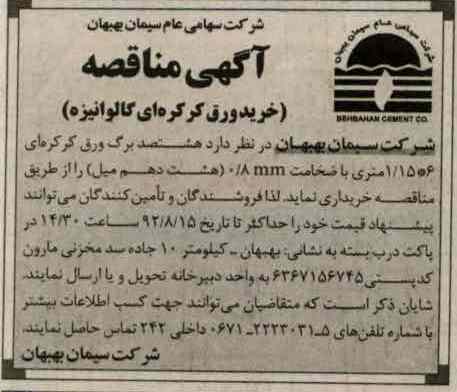 شرکت سهامی عام سیمان بهبهان
آگهی مناقصه
(خرید ورق کرکره‌ای گالوانیزه)
شرکت سهامی عام سیمان بهبهان
BEHBAHAN CEMENT CO.
شرکت سیمان بهبهان در نظر دارد هشتصد برگ ورق کرکره‌ای
۶*۱/۱۵ متری با ضخامت ۰/۸ mm (هشت دهم میل) را از طریق
مناقصه خریداری نماید. لذا فروشندگان و تأمین کنندگان می‌توانند
پیشنهاد قیمت خود را حداکثر تا تاریخ ۹۲/۸/۱۵ ساعت ۱۴/۳۰ در
پاکت درب بسته به نشانی: بهبهان ـ کیلومتر ۱۰ جاده سد مخزنی مارون
کدپستی ۶۳۶۷۱۵۶۷۴۵ به واحد دبیرخانه تحویل و یا ارسال نمایند.
شایان ذکر است که متقاضیان می‌توانند جهت کسب اطلاعات بیشتر
با شماره تلفن‌های ۵ـ۲۲۲۳۰۳۱ـ۰۶۷۱ داخلی ۲۴۲ تماس حاصل نمایند.
شرکت سیمان بهبهان